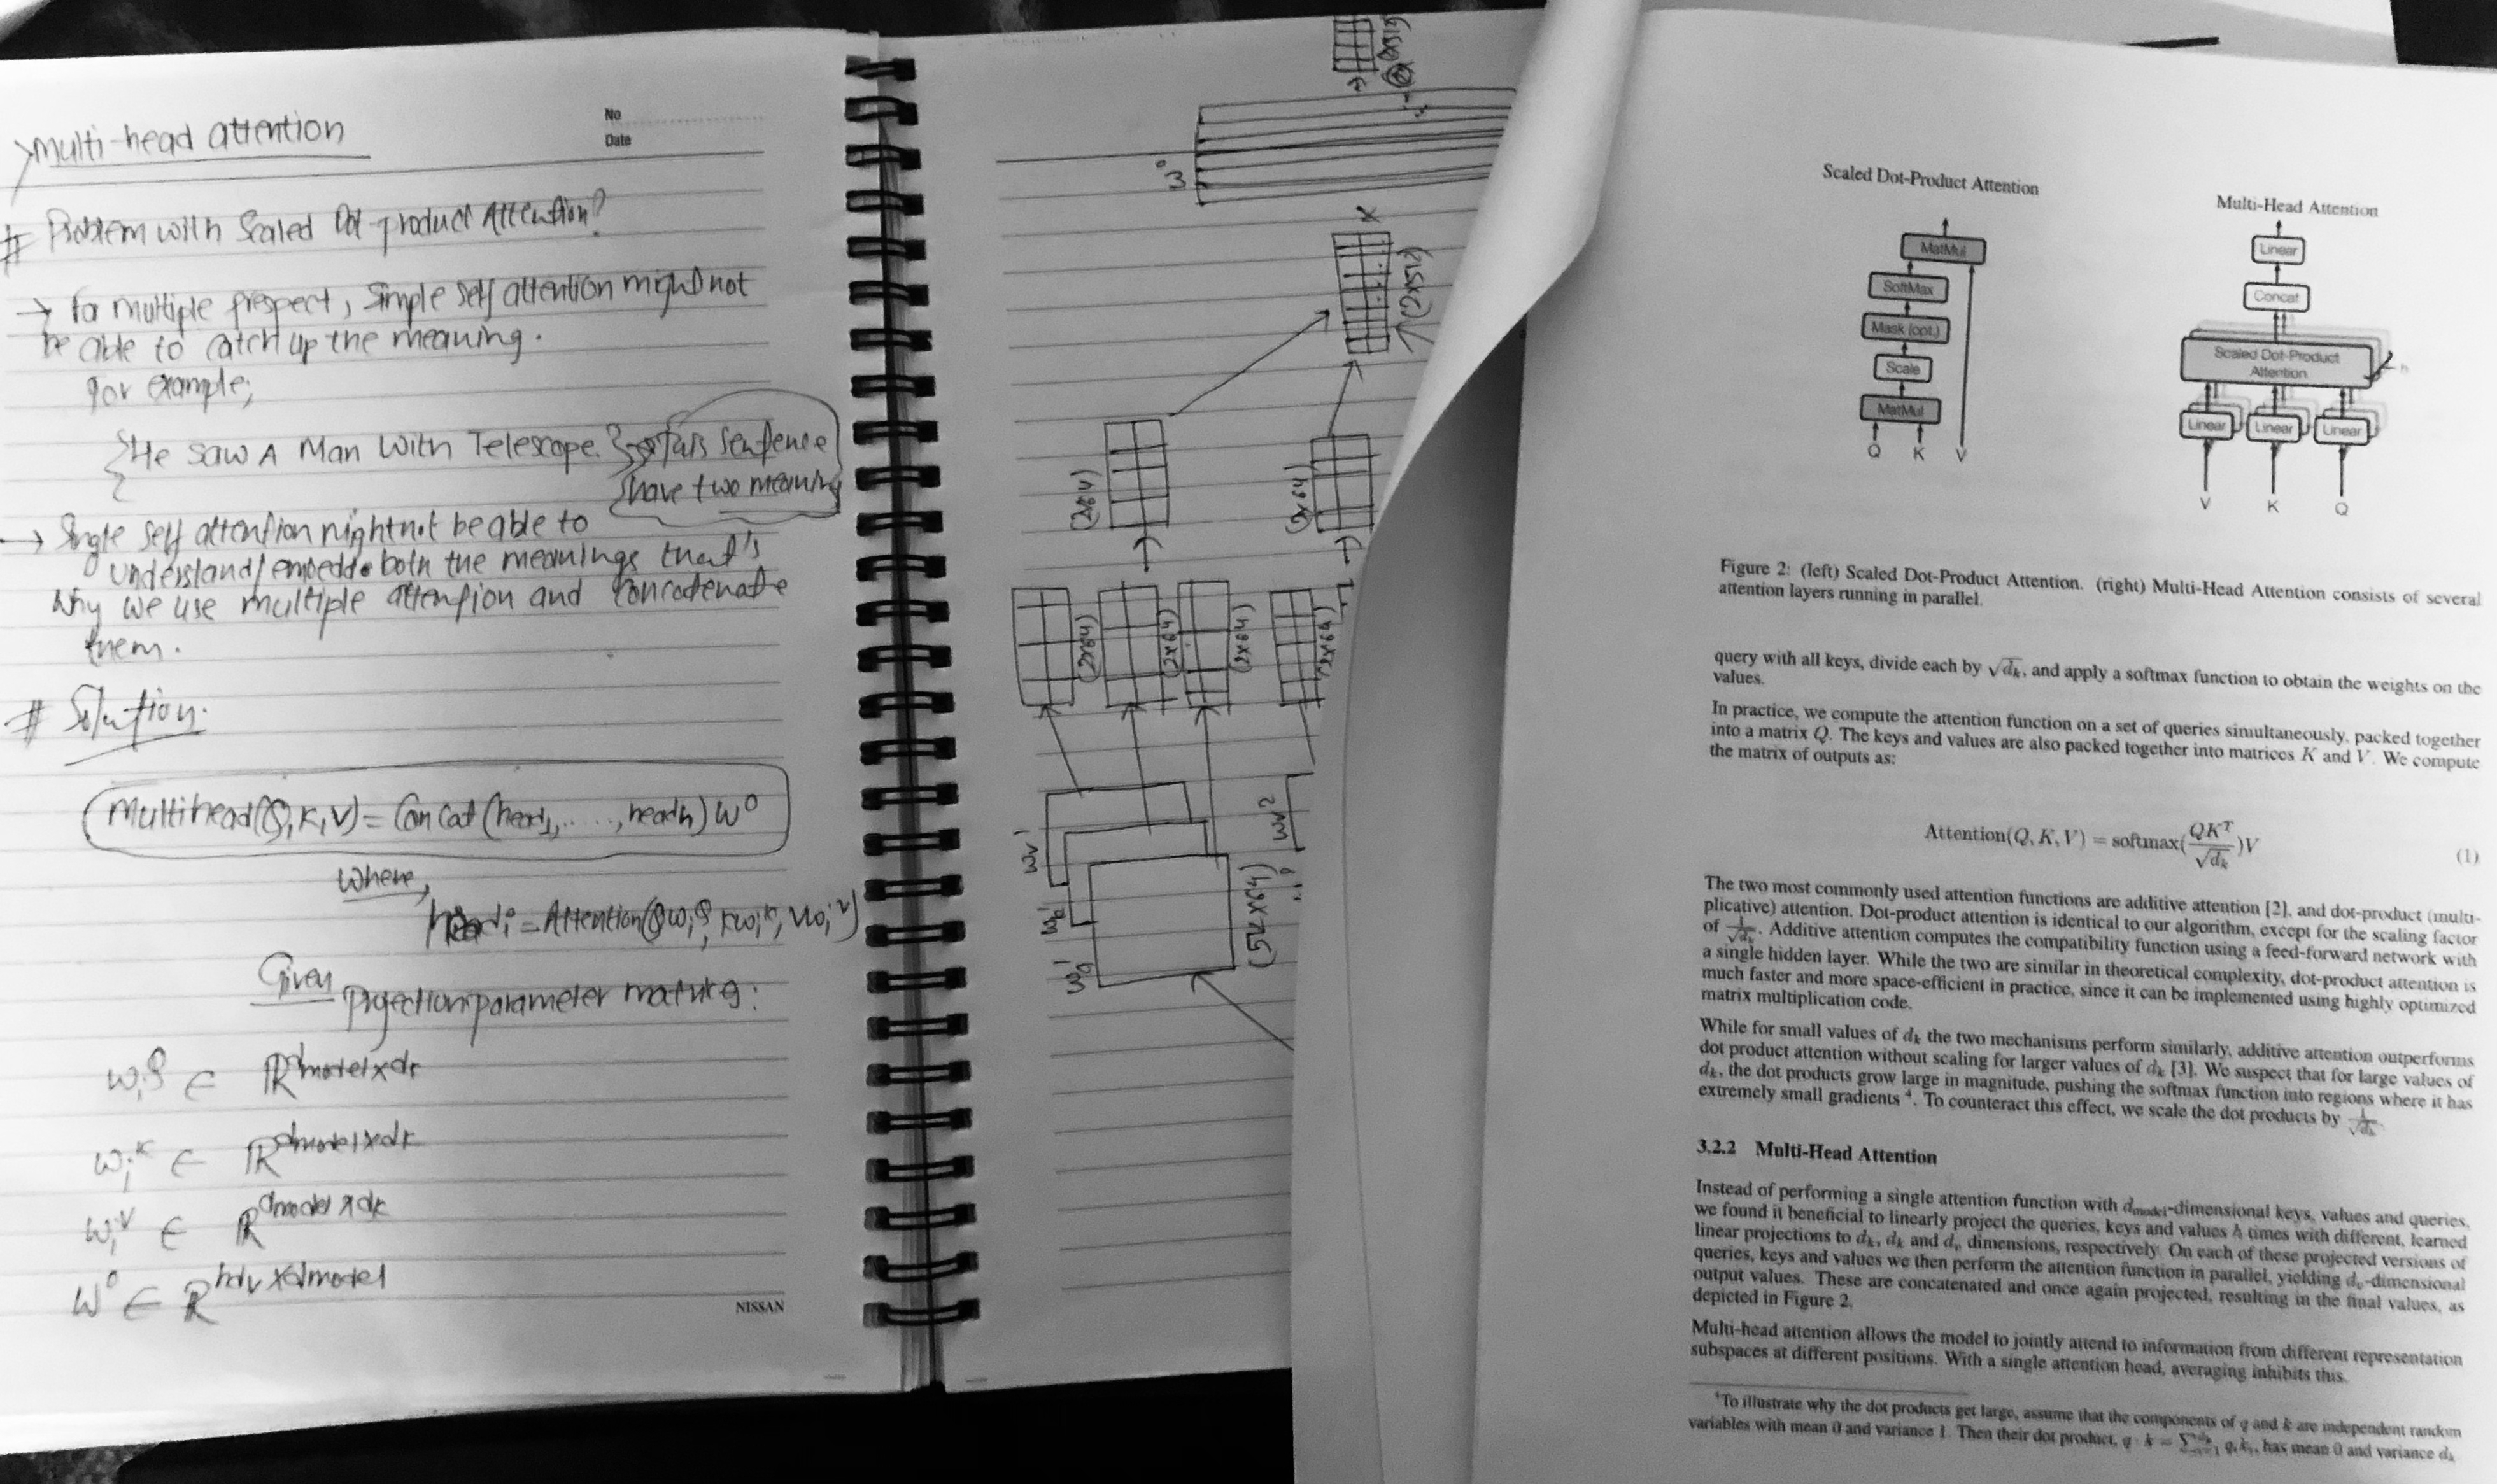 Multi-head attention
No
Date
# Problem with Scaled Dot-product Attention?
→ for multiple prespect, simple self attention might not
be able to catch up the meaning.
for example;
{He saw A Man With Telescope.} → this sentence
have two meaning
→ Single self attention might not be able to
understand/embedd both the meanings that's
why we use multiple attention and concatenate
them.
# Solution.
Multihead(Q,K,V) = Concat(head1,....., headh)W^O
where,
headi = Attention(QWi^Q, KWi^K, VWi^V)
Given
Projection parameter matrices:
Wi^Q ∈ ℝ^dmodel×dk
Wi^K ∈ ℝ^dmodel×dk
Wi^V ∈ ℝ^dmodel×dk
W^O ∈ ℝ^hdv×dmodel
NISSAN
W^O
X
(2×512)
(2×64)
(2×64)
(2×64)
(2×64)
(2×64)
(2×64)
Wv^1
Wk^1
Wq^1
Wv^2
(512×64)
Scaled Dot-Product Attention
MatMul
SoftMax
Mask (opt.)
Scale
MatMul
Q K V
Multi-Head Attention
Linear
Concat
Scaled Dot-Product
Attention
h
Linear Linear Linear
V K Q
Figure 2: (left) Scaled Dot-Product Attention. (right) Multi-Head Attention consists of several
attention layers running in parallel.
query with all keys, divide each by √dk, and apply a softmax function to obtain the weights on the
values.
In practice, we compute the attention function on a set of queries simultaneously, packed together
into a matrix Q. The keys and values are also packed together into matrices K and V. We compute
the matrix of outputs as:
Attention(Q, K, V) = softmax(QK^T/√dk)V (1)
The two most commonly used attention functions are additive attention [2], and dot-product (multi-
plicative) attention. Dot-product attention is identical to our algorithm, except for the scaling factor
of 1/√dk. Additive attention computes the compatibility function using a feed-forward network with
a single hidden layer. While the two are similar in theoretical complexity, dot-product attention is
much faster and more space-efficient in practice, since it can be implemented using highly optimized
matrix multiplication code.
While for small values of dk the two mechanisms perform similarly, additive attention outperforms
dot product attention without scaling for larger values of dk [3]. We suspect that for large values of
dk, the dot products grow large in magnitude, pushing the softmax function into regions where it has
extremely small gradients ⁴. To counteract this effect, we scale the dot products by 1/√dk.
3.2.2 Multi-Head Attention
Instead of performing a single attention function with dmodel-dimensional keys, values and queries,
we found it beneficial to linearly project the queries, keys and values h times with different, learned
linear projections to dk, dk and dv dimensions, respectively. On each of these projected versions of
queries, keys and values we then perform the attention function in parallel, yielding dv-dimensional
output values. These are concatenated and once again projected, resulting in the final values, as
depicted in Figure 2.
Multi-head attention allows the model to jointly attend to information from different representation
subspaces at different positions. With a single attention head, averaging inhibits this.
⁴To illustrate why the dot products get large, assume that the components of q and k are independent random
variables with mean 0 and variance 1. Then their dot product, q · k = ∑ qiki, has mean 0 and variance dk